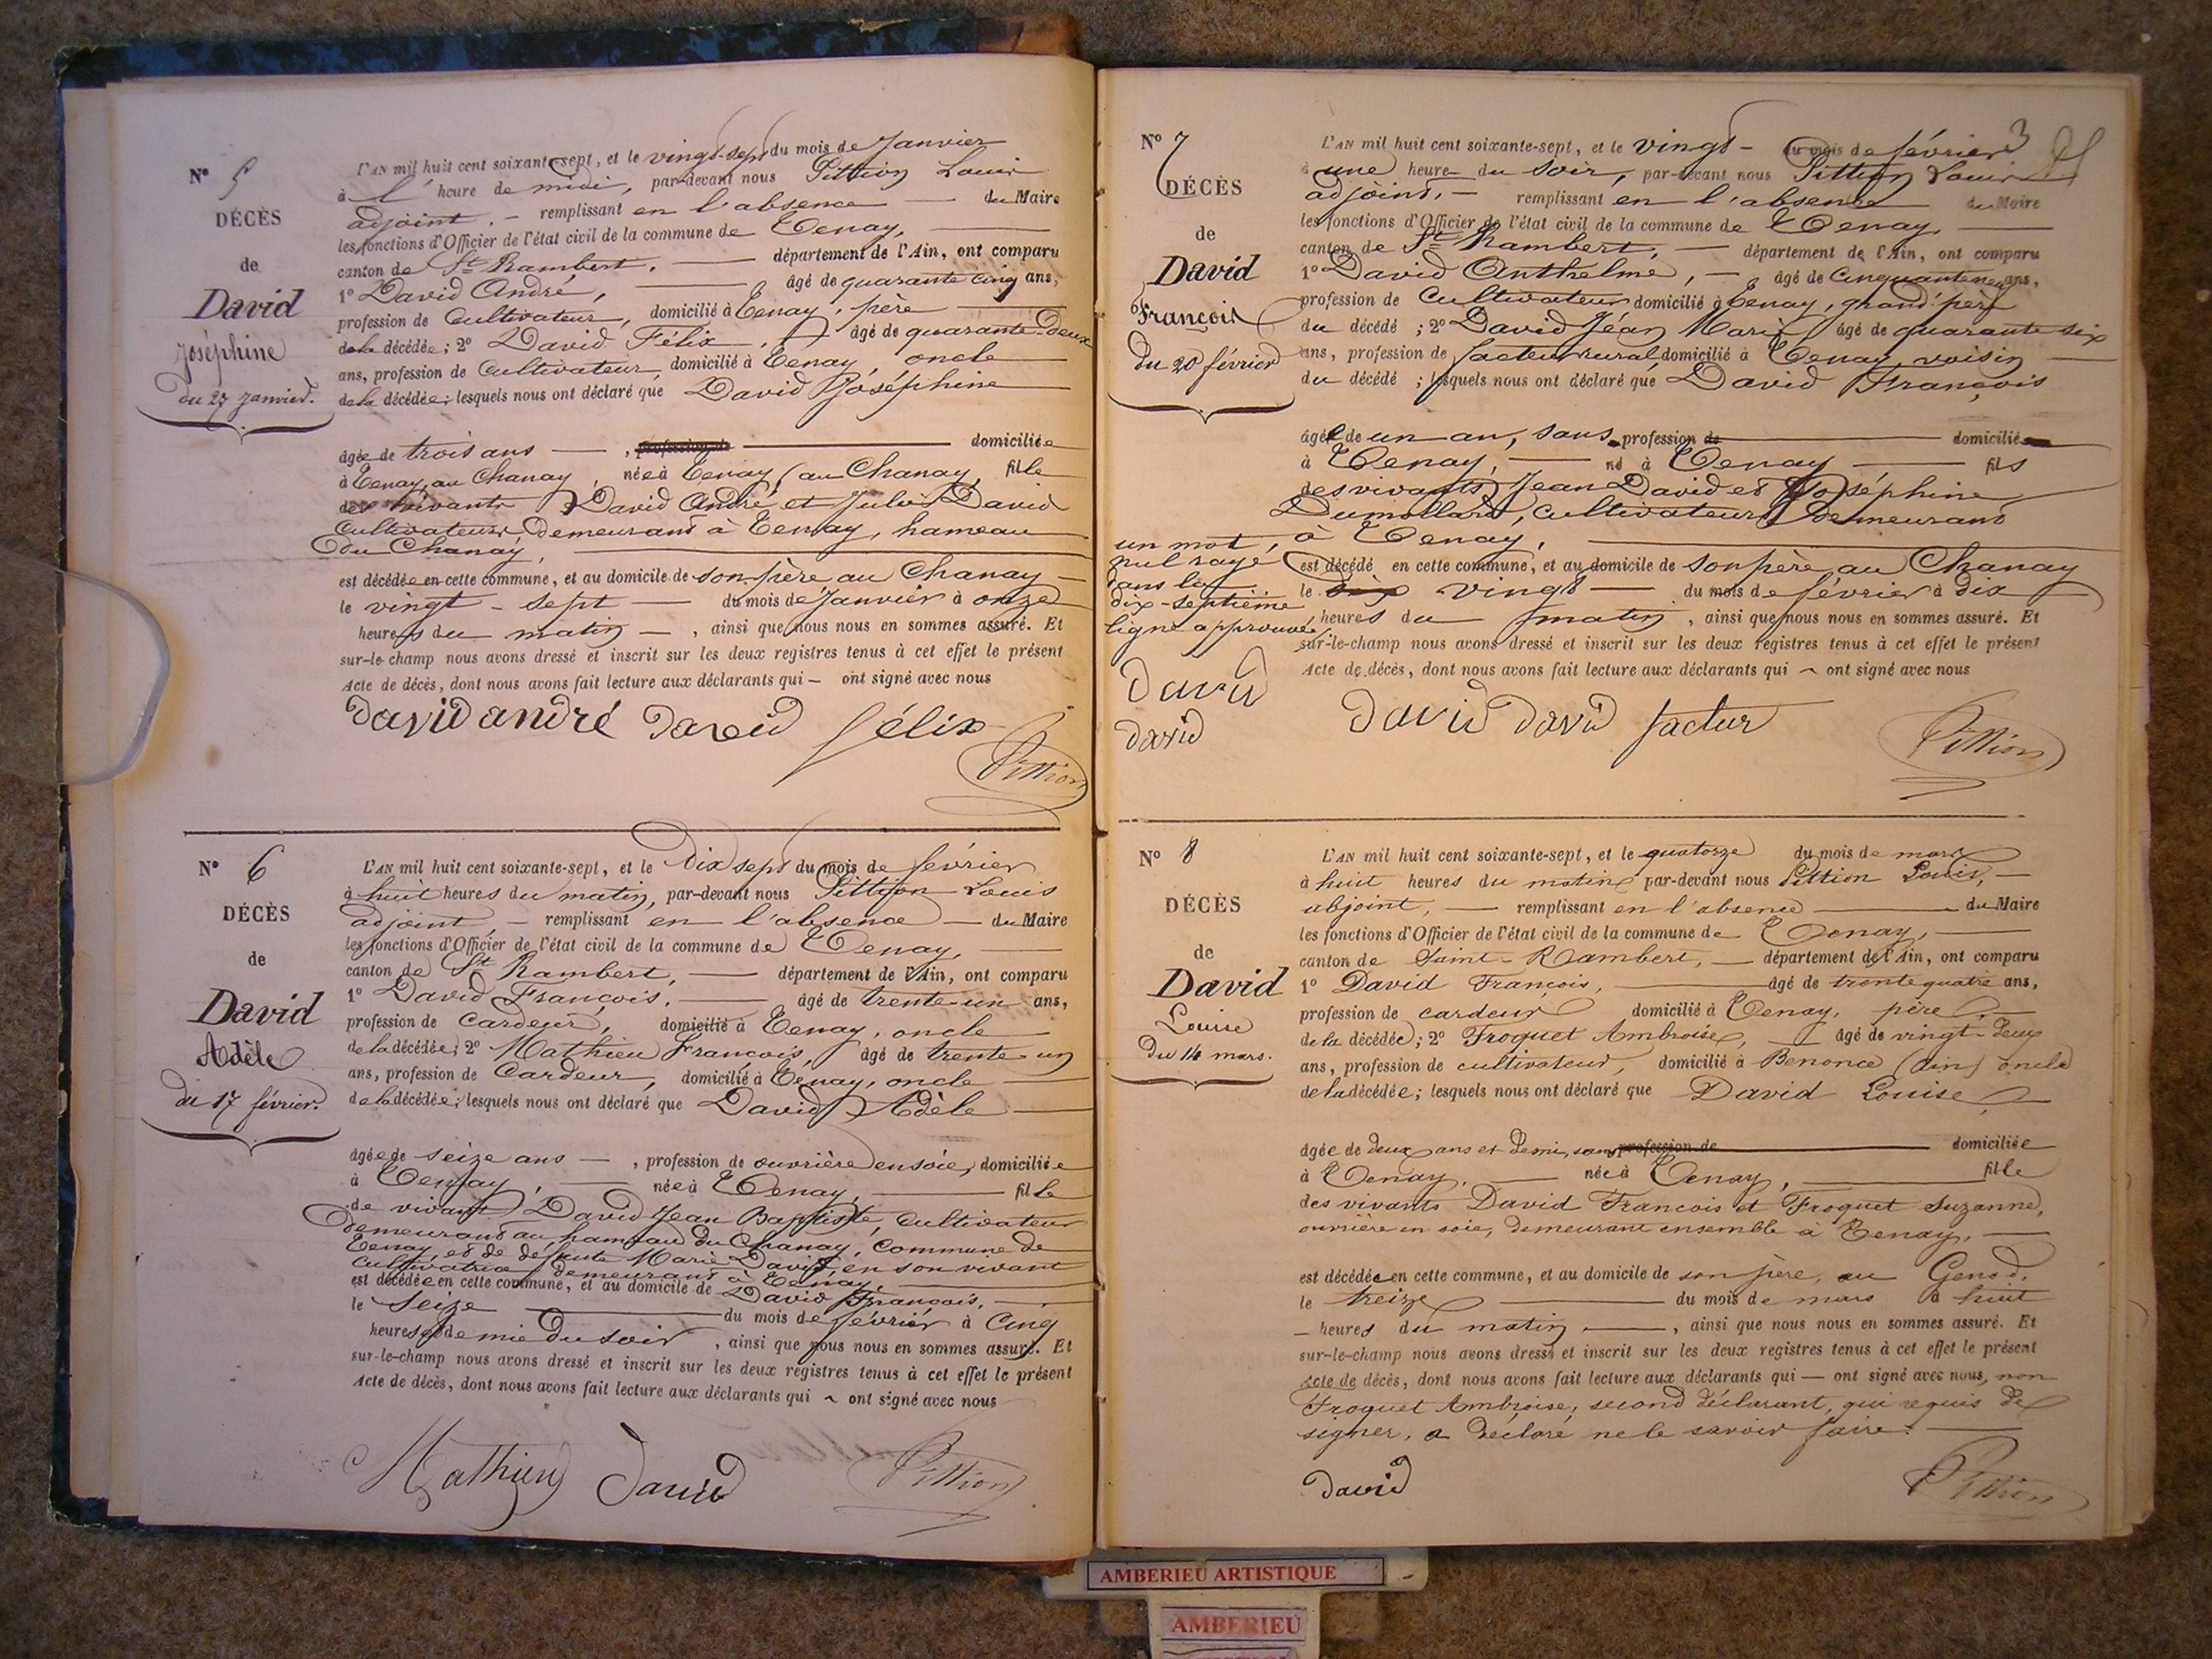 N° 5
DÉCÈS
de
David
Joséphine
du 27 janvier.
L'AN mil huit cent soixante-sept, et le vingt-sept du mois de Janvier
à l' heure de midi, par-devant nous Pittion Louis
adjoint, remplissant en l'absence du Maire
les fonctions d'Officier de l'état civil de la commune de Tenay,
canton de St Rambert, département de l'Ain, ont comparu
1° David André, âgé de quarante cinq ans,
profession de Cultivateur, domicilié à Tenay, père
de la décédée; 2° David Félix, âgé de quarante-deux
ans, profession de Cultivateur domicilié à Tenay, oncle
de la décédée; lesquels nous ont déclaré que David Joséphine
âgée de trois ans, profession de domiciliée
à Tenay, au Chanay, née à Tenay, (au Chanay, fille
des vivants David André et Julie David
Cultivateurs, demeurant à Tenay, hameau
du Chanay,
est décédée en cette commune, et au domicile de son père au Chanay
le vingt-sept du mois de Janvier à onze
heures du matin, ainsi que nous nous en sommes assuré. Et
sur-le-champ nous avons dressé et inscrit sur les deux registres tenus à cet effet le présent
Acte de décès, dont nous avons fait lecture aux déclarants qui — ont signé avec nous
david andré david félix
Pittion
N° 6
DÉCÈS
de
David
Adèle
du 17 février.
L'AN mil huit cent soixante-sept, et le Dix sept du mois de février
à huit heures du matin, par-devant nous Pittion Louis
adjoint, — remplissant en l'absence — du Maire
les fonctions d'Officier de l'état civil de la commune de Tenay,
canton de St Rambert, département de l'Ain, ont comparu
1° David François, âgé de trente-un ans,
profession de Cardeur, domicilié à Tenay, oncle
de la décédée; 2° Mathieu François, âgé de trente un
ans, profession de Cardeur, domicilié à Tenay, oncle
de la décédée; lesquels nous ont déclaré que David Adèle
âgée de seize ans —, profession de ouvrière en soie, domiciliée
à Tenay, née à Tenay, fille
de vivant David Jean Baptiste, Cultivateur
demeurant au hameau du Chanay, Commune de
Tenay, et de défunte Marie David, en son vivant
Cultivatrice demeurant à Tenay,
est décédée en cette commune, et au domicile de David François,
le Seize du mois de février à Cinq
heures et demie du soir, ainsi que nous nous en sommes assuré. Et
sur-le-champ nous avons dressé et inscrit sur les deux registres tenus à cet effet le présent
Acte de décès, dont nous avons fait lecture aux déclarants qui ~ ont signé avec nous
Mathieu David
Pittion
3
N° 7
DÉCÈS
de
David
François
du 20 février
L'AN mil huit cent soixante-sept, et le vingt - du mois de février
à une heure du soir, par-devant nous Pittion Louis
adjoint, — remplissant en l'absence du Maire
les fonctions d'Officier de l'état civil de la commune de Tenay,
canton de St Rambert, département de l'Ain, ont comparu
1° David Anthelme, — âgé de ans,
profession de Cultivateur domicilié à Tenay, grand'père
du décédé ; 2° David Jean Marie âgé de quarante six
ans, profession de facteur rural domicilié à Tenay, voisin
du décédé ; lesquels nous ont déclaré que David François
âgé de un an, sans profession de domicilié
à Tenay, né à Tenay fils
des vivants Jean David et Joséphine
Dumollard, cultivateurs demeurant
à Tenay,
un mot,
nul rayé
dans la
dix-septième
ligne approuvé
David
david
est décédé en cette commune, et au domicile de son père, au Chanay
le dix vingt — du mois de février à dix
heures du matin, ainsi que nous nous en sommes assuré. Et
sur-le-champ nous avons dressé et inscrit sur les deux registres tenus à cet effet le présent
Acte de décès, dont nous avons fait lecture aux déclarants qui ~ ont signé avec nous
David david factur
Pittion
N° 8
DÉCÈS
de
David
Louise
Du 14 mars.
L'AN mil huit cent soixante-sept, et le quatorze du mois de mars
à huit heures du matin par-devant nous Pittion Louis, —
abjoint, — remplissant en l'absence du Maire
les fonctions d'Officier de l'état civil de la commune de Tenay,
canton de Saint-Rambert, — département de l'Ain, ont comparu
1° David François, âgé de trente quatre ans,
profession de cardeur domicilié à Tenay, père
de la décédée; 2° Froquet Ambroise, âgé de vingt-deux
ans, profession de cultivateur, domicilié à Benonce (Ain) oncle
de la décédée; lesquels nous ont déclaré que David Louise
âgée de deux ans et demi, sans profession de domiciliée
à Tenay, née à Tenay, fille
des vivants David François et Froquet Suzanne,
ouvrière en soie, demeurant ensemble à Tenay, —
est décédée en cette commune, et au domicile de son père, au Genod,
le treize du mois de mars à huit
— heures du matin, ainsi que nous nous en sommes assuré. Et
sur-le-champ nous avons dressé et inscrit sur les deux registres tenus à cet effet le présent
Acte de décès, dont nous avons fait lecture aux déclarants qui — ont signé avec nous, non
Froquet Ambroise, second déclarant, qui requis de
signer, a déclaré ne le savoir faire.
David
Pittion
AMBERIEU ARTISTIQUE
AMBERIEU